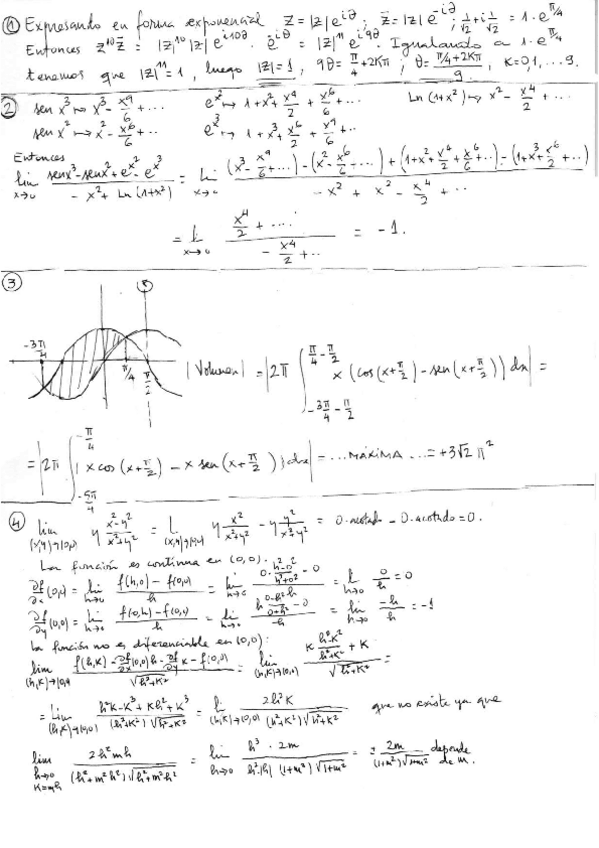 ① Expresando en forma exponencial z = |z| e^{iθ}; z̄ = |z| e^{-iθ}; 1/√2 + i 1/√2 = 1·e^{π/4}
Entonces z^{10} z̄ = |z|^{10} |z| e^{i10θ} · e^{iθ} = |z|^{11} e^{i9θ}. Igualando a 1·e^{π/4}
tenemos que |z|^{11} = 1, luego |z| = 1, 9θ = π/4 + 2kπ; θ = (π/4 + 2kπ)/9, k = 0,1,...9.
② sen x^3 ↔ x^3 - x^9/6 + ... e^{x^2} ↔ 1 + x^2 + x^4/2 + x^6/6 + ... Ln(1+x^2) ↔ x^2 - x^4/2 + ...
sen x^2 ↔ x^2 - x^6/6 + ... e^{x^3} ↔ 1 + x^3 + x^6/2 + x^9/6 + ..
Entonces
lim x→0 (sen x^3 - sen x^2 + e^{x^2} - e^{x^3})/(-x^2 + Ln(1+x^2)) = lim x→0 ((x^3 - x^9/6 + ...) - (x^2 - x^6/6 + ...) + (1 + x^2 + x^4/2 + x^6/6 + ..) - (1 + x^3 + x^6/2 + ..))/(-x^2 + x^2 - x^4/2 + ..)
= l x→0 (x^4/2 + ....)/(-x^4/2 + ..) = -1.
③
-3π/4 π/4 π/2
|Volumen| = |2π ∫_{-3π/4 - π/2}^{π/4 - π/2} x (cos(x+π/2) - sen(x+π/2)) dx| =
= |2π ∫_{-5π/4}^{-π/4} x cos(x+π/2) - x sen(x+π/2) dx| = ... MÁXIMA ... = +3√2 π^2
④ lim (x,y)→(0,0) y (x^2-y^2)/(x^2+y^2) = lim (x,y)→(0,0) y x^2/(x^2+y^2) - y y^2/(x^2+y^2) = 0·acotado - 0·acotado = 0.
La función es continua en (0,0).
∂f/∂x (0,0) = lim h→0 (f(h,0) - f(0,0))/h = lim h→0 (0·(h^2-0^2)/(h^2+0^2) - 0)/h = l h→0 0/h = 0
∂f/∂y (0,0) = lim h→0 (f(0,h) - f(0,0))/h = lim h→0 (h (0-h^2)/(0+h^2) - 0)/h = lim h→0 -h/h = -1
La función no es diferenciable en (0,0):
lim (h,k)→(0,0) (f(h,k) - ∂f/∂x(0,0)h - ∂f/∂y k - f(0,0))/√(h^2+k^2) = lim (h,k)→(0,0) (k (h^2-k^2)/(h^2+k^2) + k)/√(h^2+k^2) =
= lim (h,k)→(0,0) (h^2k - k^3 + kh^2 + k^3)/((h^2+k^2)√(h^2+k^2)) = l (h,k)→(0,0) 2h^2k/((h^2+k^2)√(h^2+k^2)) que no existe ya que
lim h→0 k=mh 2h^2mh/((h^2+m^2h^2)√(h^2+m^2h^2)) = lim h→0 h^3·2m/(h^2|h|(1+m^2)√(1+m^2)) = ± 2m/((1+m^2)√(1+m^2)) depende de m.